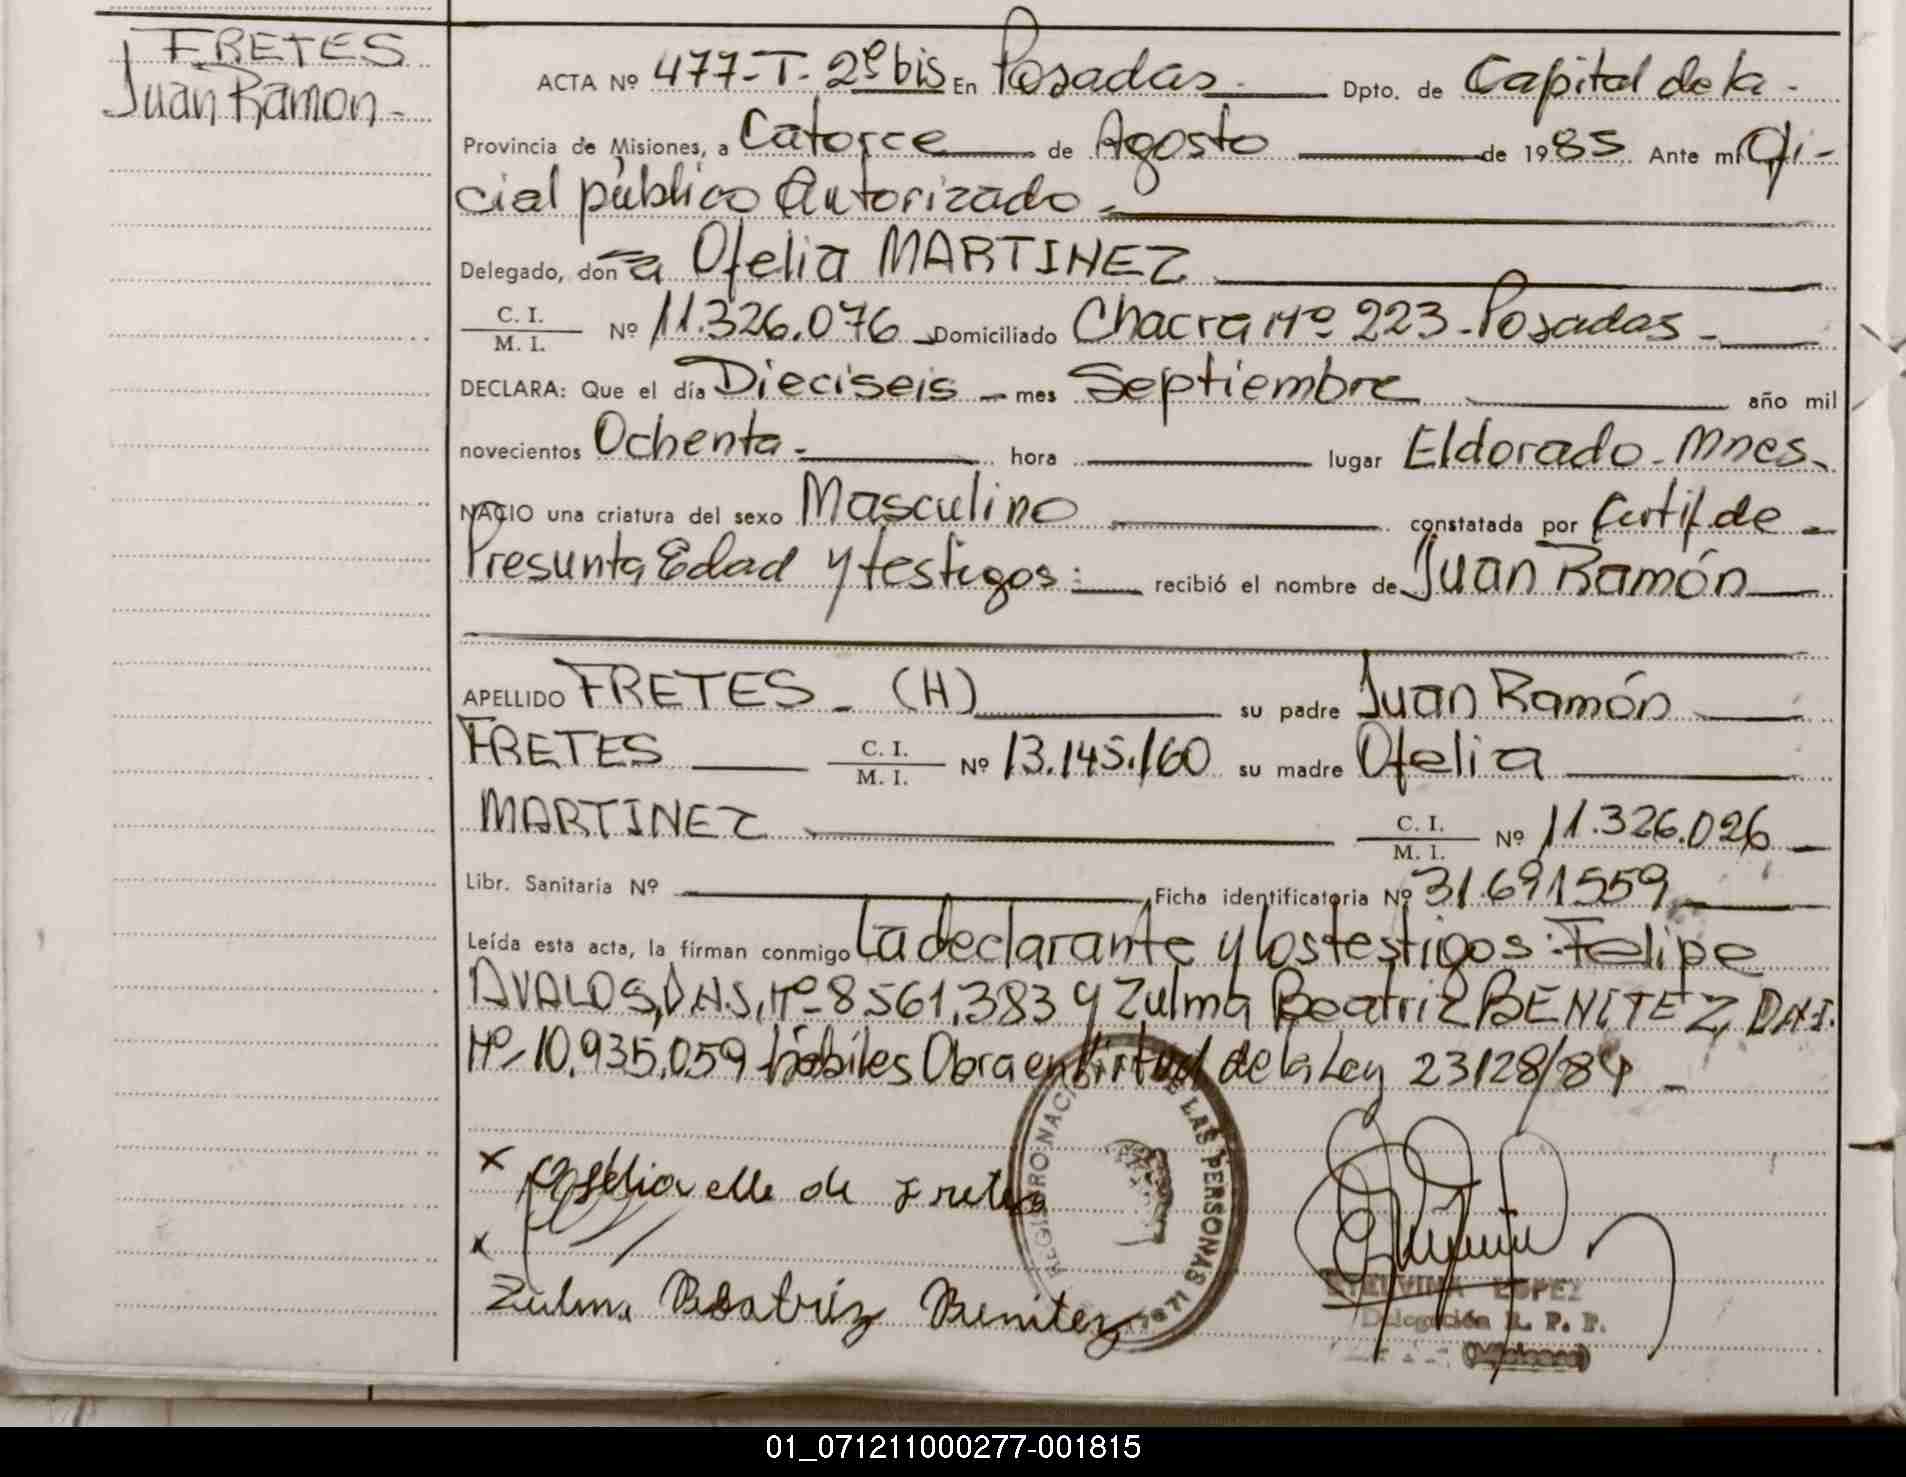 FRETES
Juan Ramon -
ACTA Nº 477-T- 2º bis En Posadas - Dpto. de Capital de la -
Provincia de Misiones, a Catorce de Agosto de 1985 Ante mi Ofi-
cial público Autorizado -
Delegado, don a Ofelia MARTINEZ
C. I.
M. I.
Nº 11.326.076 - Domiciliado Chacra Nº 223 - Posadas -
DECLARA: Que el día Dieciseis - mes Septiembre año mil
novecientos Ochenta - hora lugar Eldorado - Mnes.
NACIO una criatura del sexo Masculino constatada por Certif. de -
Presunta Edad y testigos: recibió el nombre de Juan Ramón
APELLIDO FRETES - (H) su padre Juan Ramón
FRETES C. I. M. I. Nº 13.145.160 su madre Ofelia
MARTINEZ C. I. M. I. Nº 11.326.026
Libr. Sanitaria Nº Ficha identificatoria Nº 31.691559
Leída esta acta, la firman conmigo La declarante y los testigos: Felipe
AVALOS, D.N.I. Nº 8561.383 y Zulma Beatriz BENITEZ, D.N.I.
Nº 10.935.059 hábiles Obra en Virtud de la Ley 23128/84 -
x de Fretes
x
Zulma Beatriz Benitez
REGISTRO NAC DE LAS PERSONAS
LOPEZ
Delegación R. P. P.
(Misiones)
01_071211000277-001815